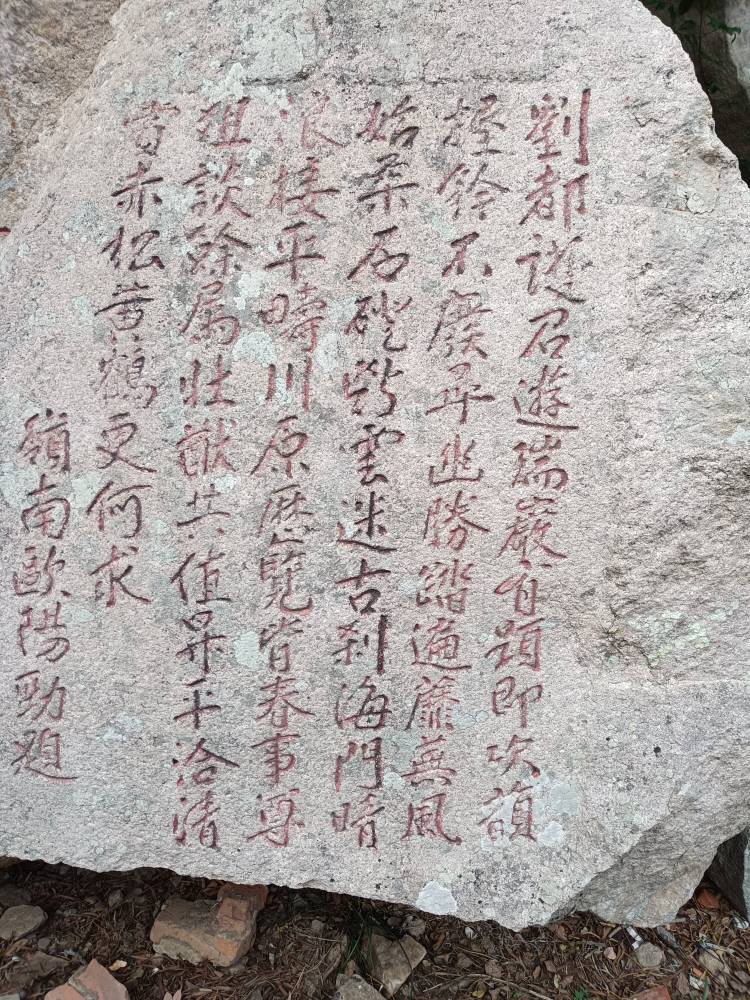 劉都護召遊瑞巖有題即次韻
鈴不廢尋幽勝踏遍蘼蕪風
始柔石磴紫雲迷古刹海門晴
浪接平疇川原歷覽皆春事尊
俎談餘屬壯猷共值昇平洽清
赤松黃鶴更何求
嶺南歐陽勁題